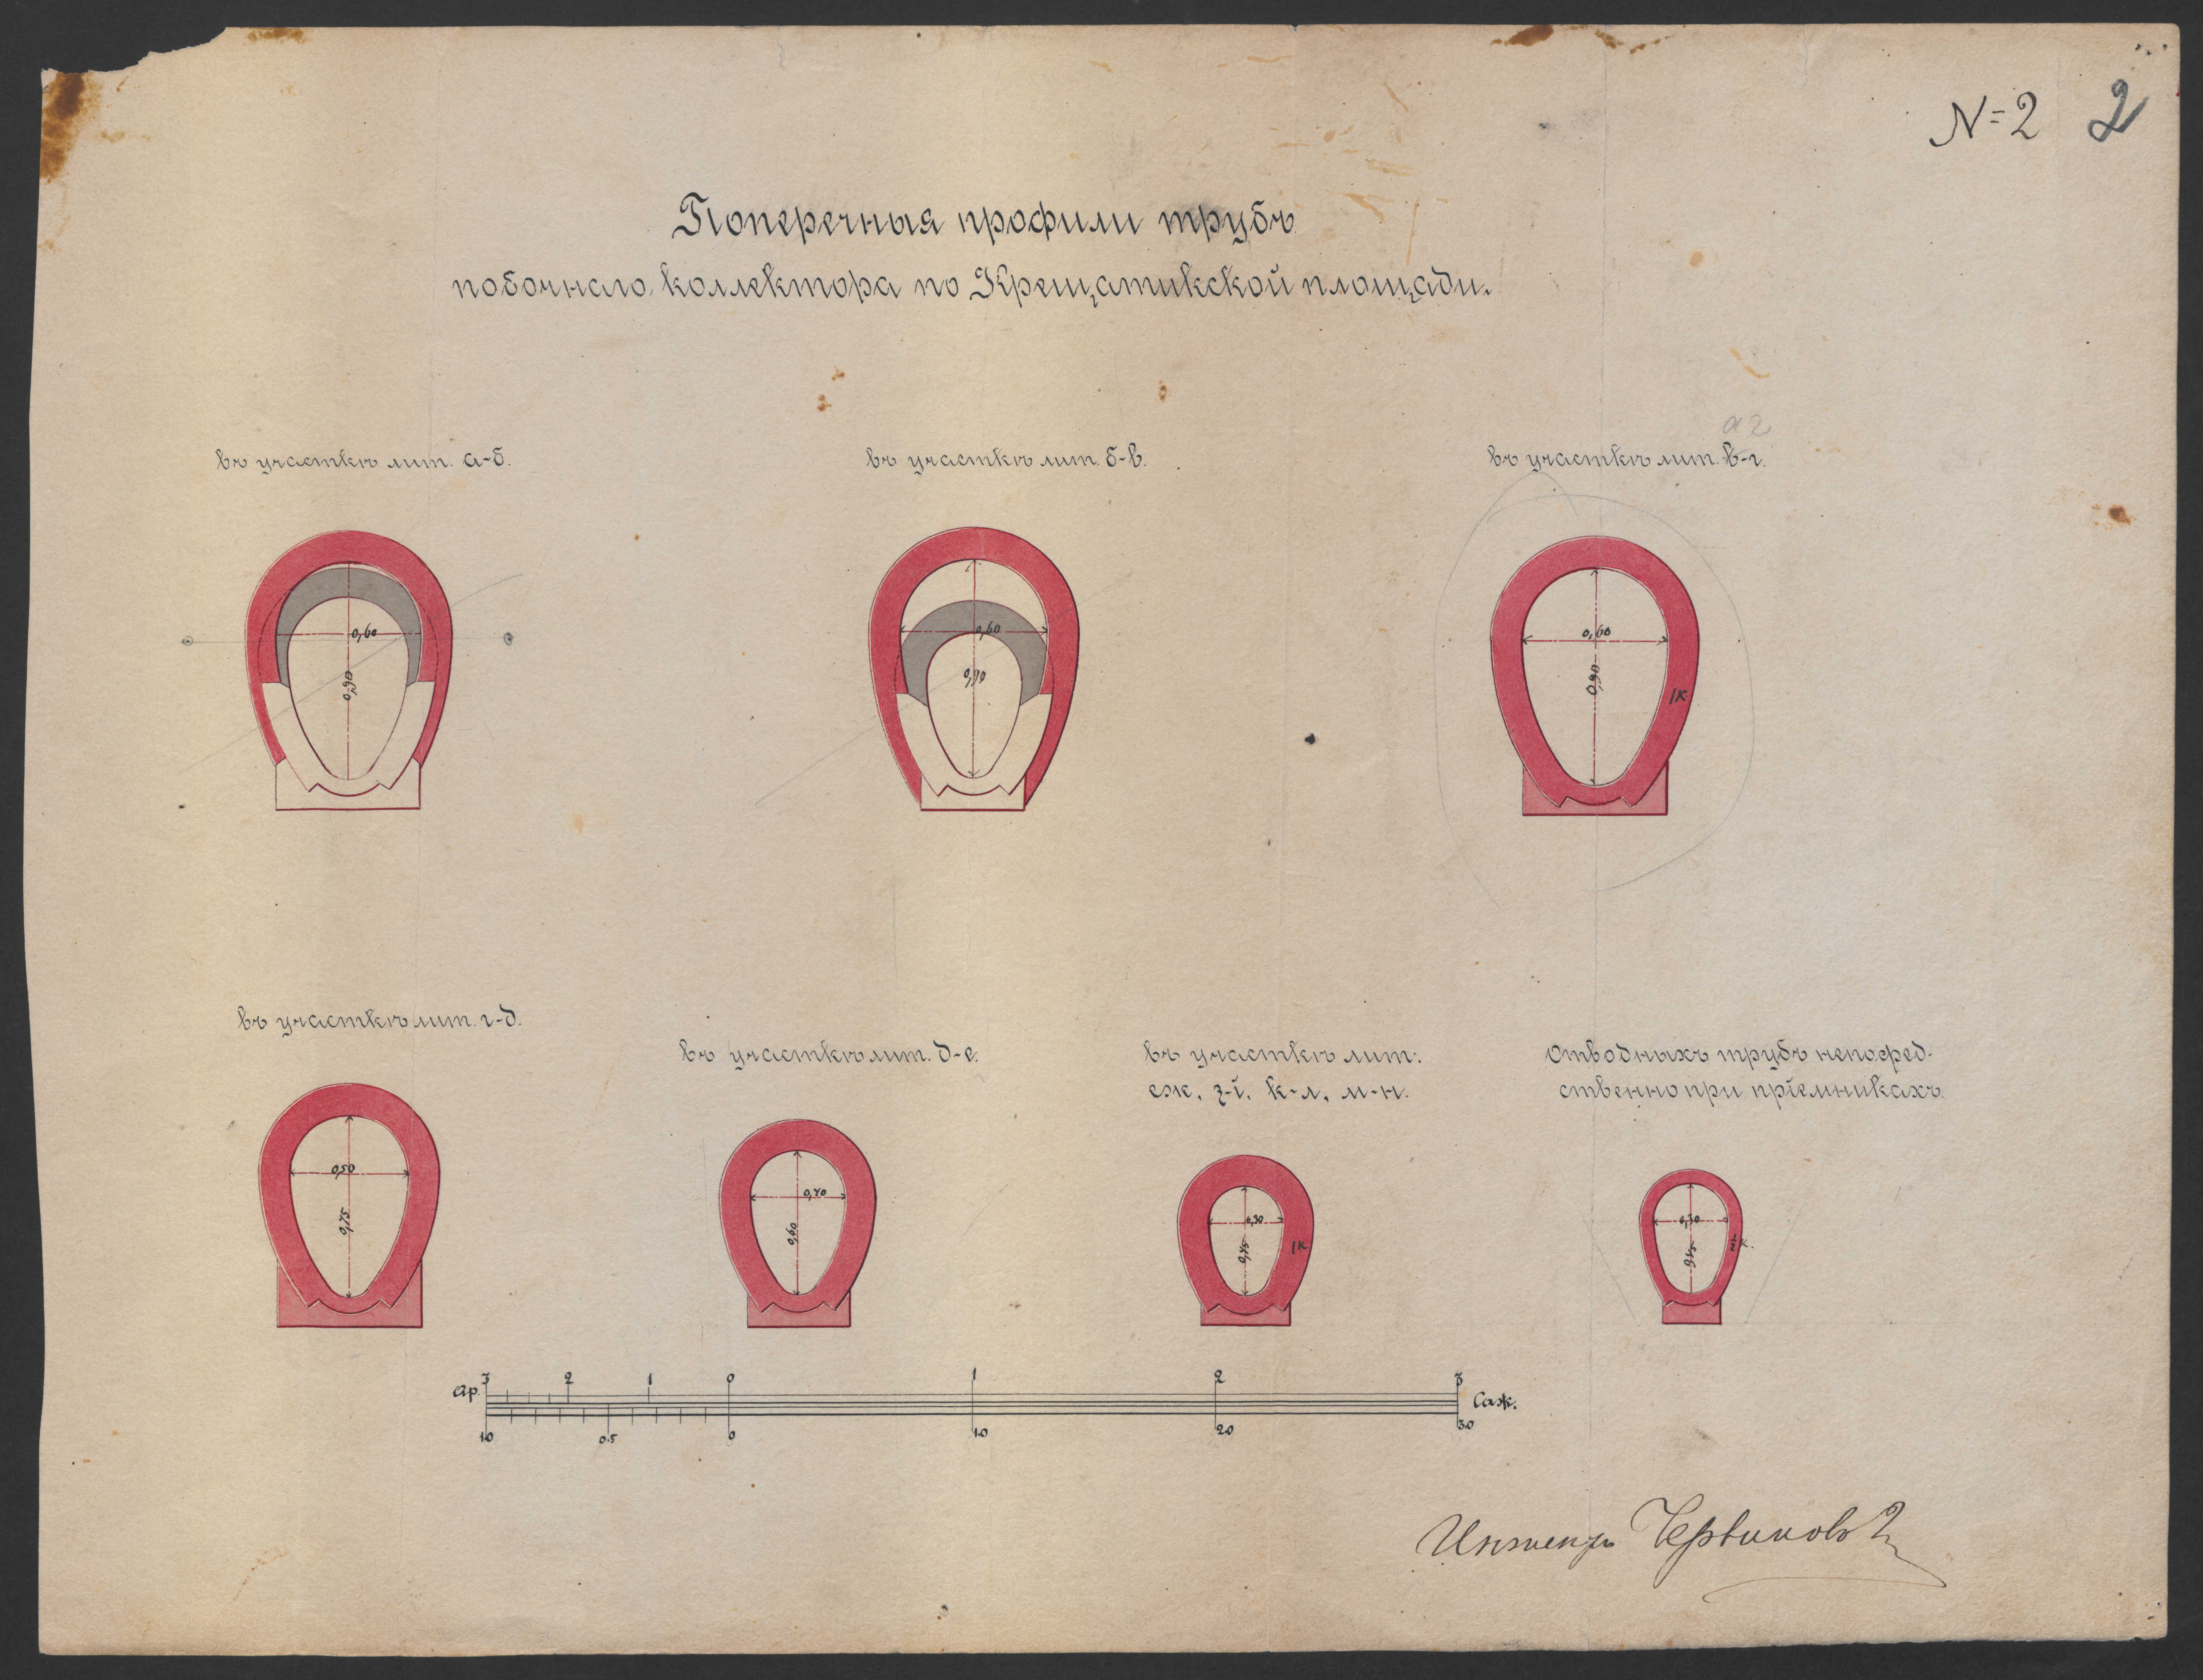 N=2 2
Поперечныя профили трубъ
побочнаго коллектора по Крещатикской площади.
а г
въ участкѣ лит. а-б.
въ участкѣ лит. б-в.
въ участкѣ лит. в-г.
0,60
0,90
0,60
0,90
0,60
0,90
1К
въ участкѣ лит. г-д.
въ участкѣ лит. д-е.
въ участкѣ лит.
еж, з-і, к-л, м-н.
Отводныхъ трубъ непосред-
ственно при пріемникахъ.
0,50
0,75
0,40
0,60
0,30
0,45
1К
0,30
0,45
К.
ар. 3 2 1 0 1 2 3 Саж.
1.0 0.5 0 1.0 2.0 3.0
Инженеръ